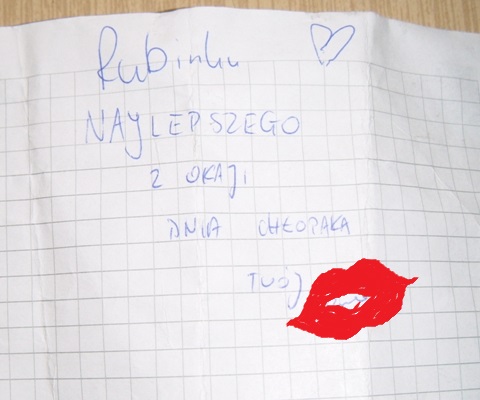 Rubinku
NAJLEPSZEGO
Z OKAJI
DNIA CHŁOPAKA
TWÓJ